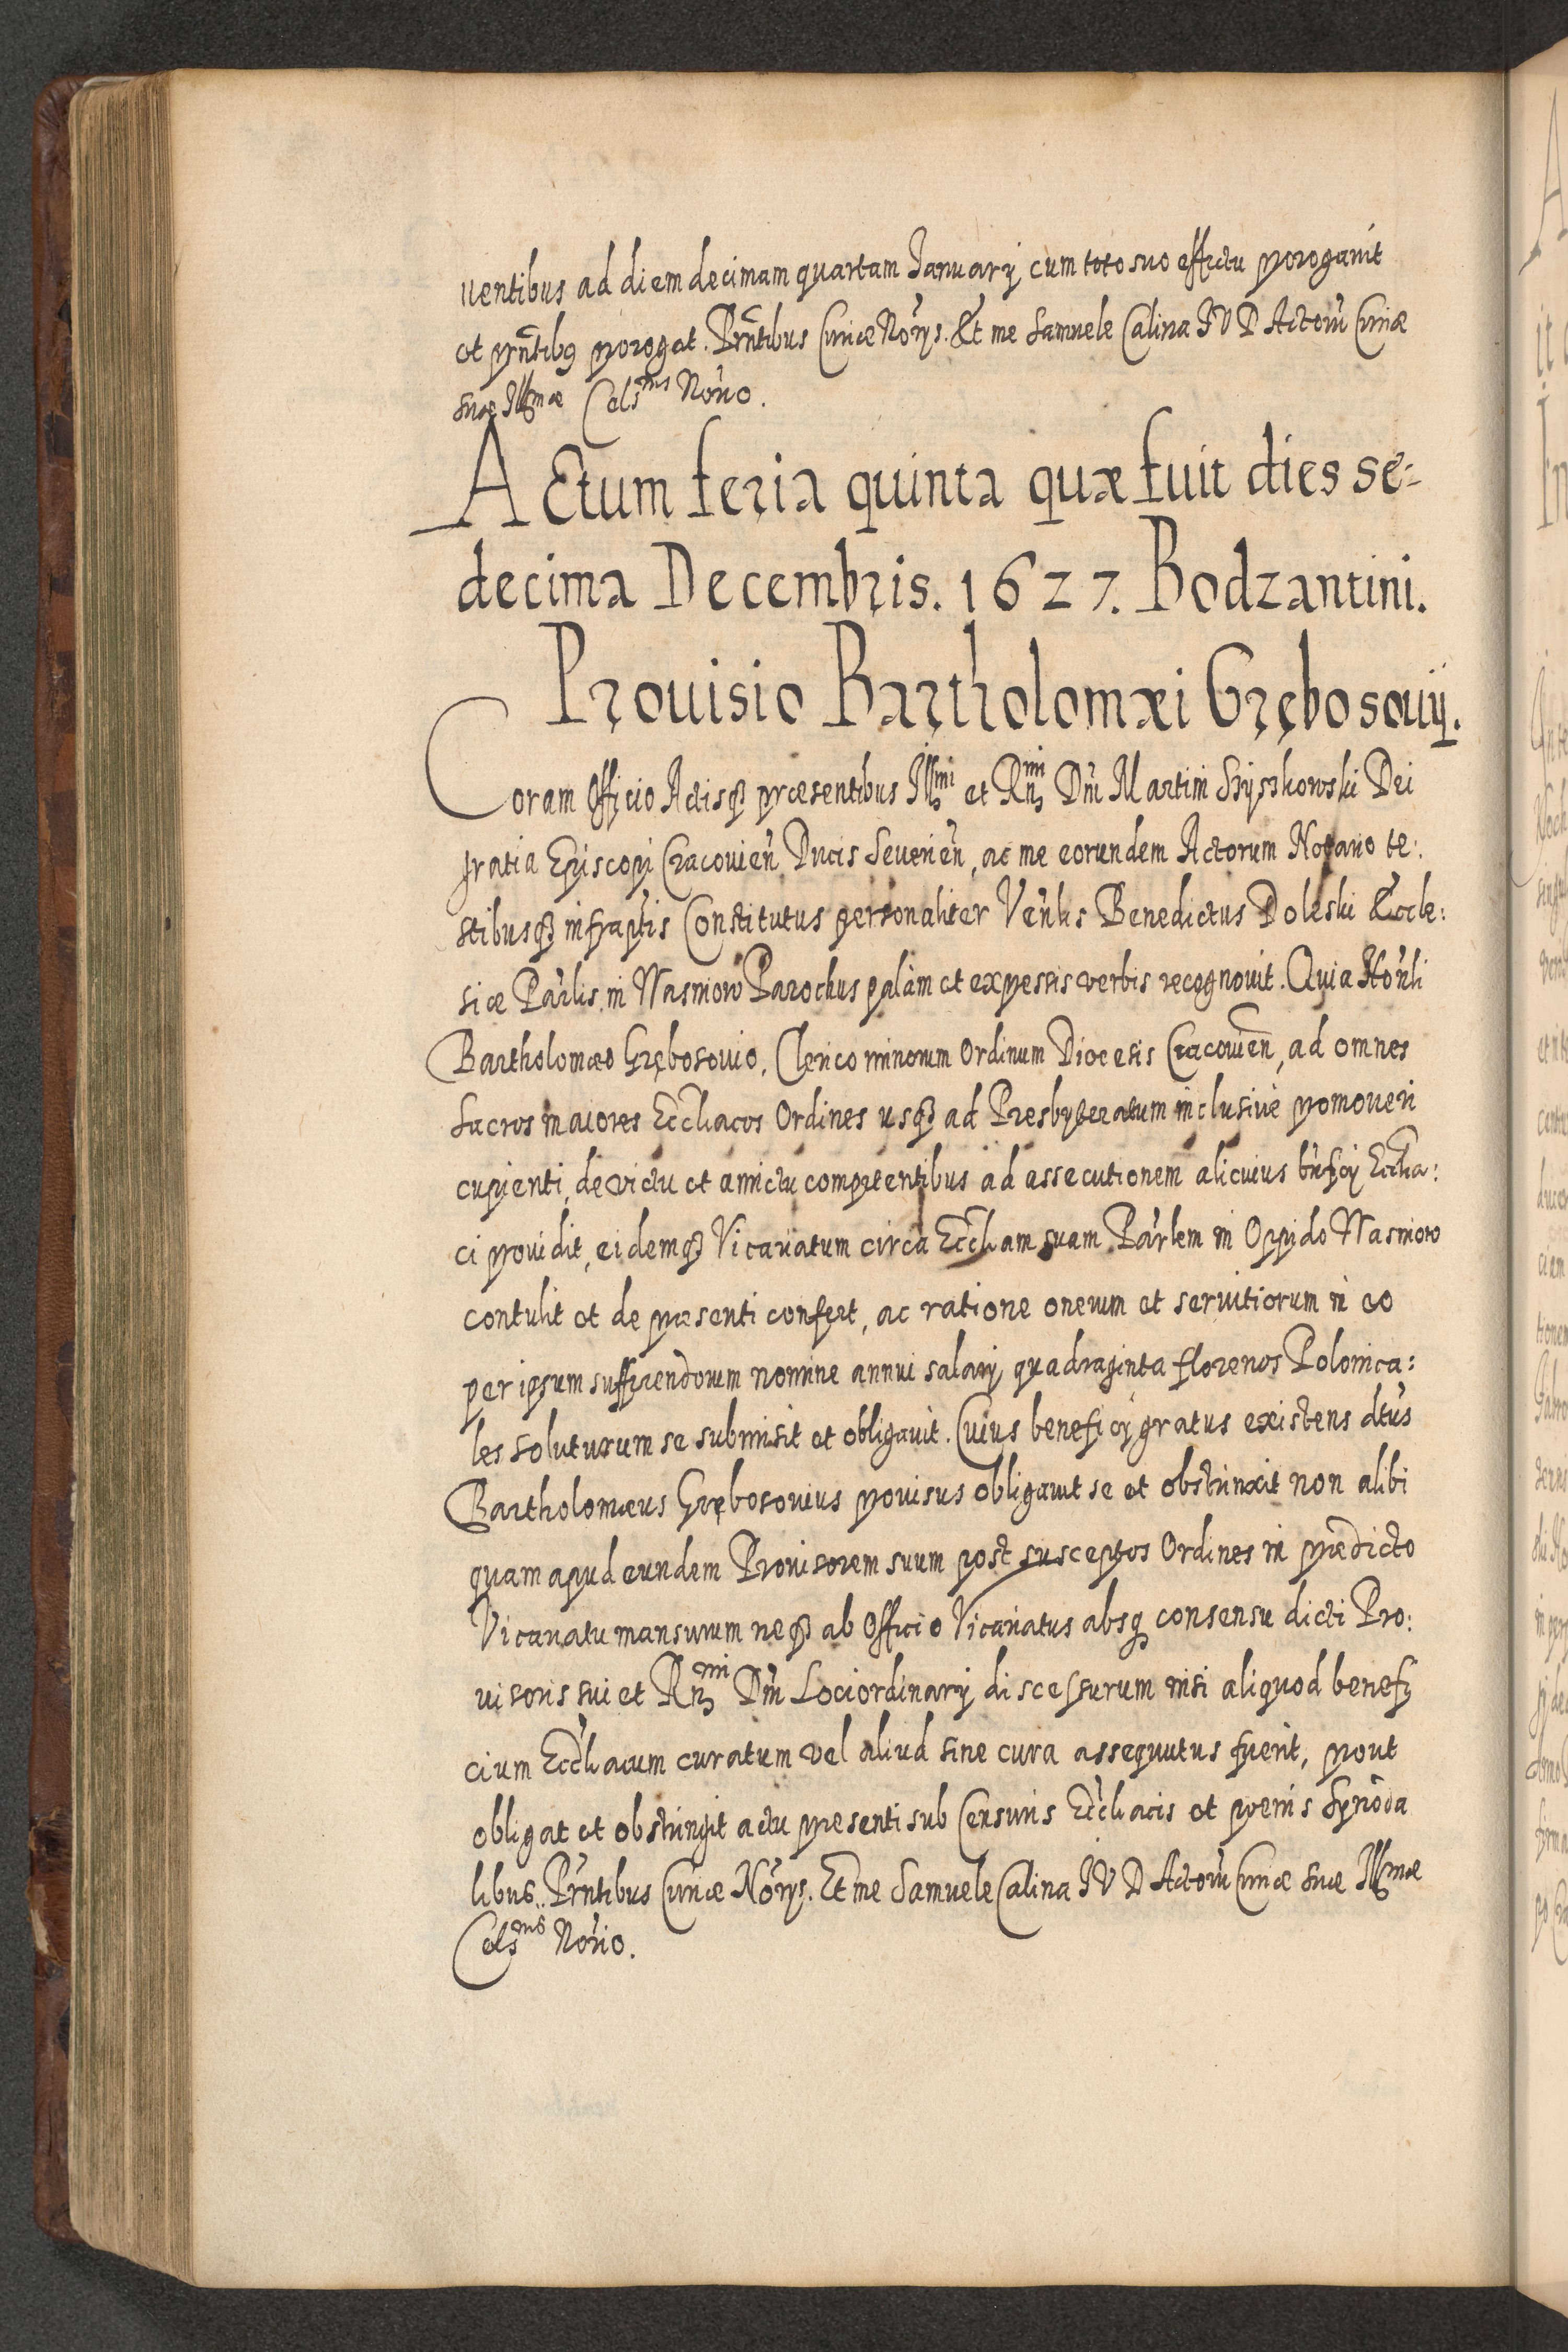 uentibus ad diem decimam quartam Januarÿ cum toto suo effectu prorogauit
et pñtibus prorogat. Prñtibus Curiae Nõrÿs. Et me Samuele Calina IVD Actoru Curiae
suae Illmae Celsnis Nõrio.
Actum feria quinta quæ fuit dies se-
decima Decembris. 1627. Bodzantini.
Prouisio Bartholomæi Grębosouÿ.
Coram Officio Actisq præsentibus Illmi et Rmi Dñi Martini Szyszkowski Dei
gratia Episcopi Cracouieñ Ducis Seuerieñ, ac me eorundem Actorum Notario te:
stibusq infraptis Constitutus personaliter Venlis Benedictus Doleski Eccle:
siæ Parlis in Wasniow Parochus palàm et expressis verbis recognouit. Quia Honli
Bartholomæo Grębosouio, Clerico minorum Ordinum Diocesis Cracouien, ad omnes
Sacros maiores Ecclhacos Ordines usq ad Presbyteratum inclusiuè promoueri
cupienti, de victu et amictu competentibus ad assecutionem alicuius bnficÿ Ecclia:
ci prouidit, eidemq Vicariatum circa Eccliam suam Parlem in Oppido Wasniow
contulit et de præsenti confert, ac ratione onerum et seruitiorum in eo
per ipsum sufferendorum nomine annui salarÿ quadraginta florenos Polonica:
les soluturum se submisit et obligauit. Cuius beneficÿ gratus existens dtus
Bartholomæus Grębosouius prouisus obligauit se et obstrinxit non alibi
quam apud eundem Prouisorem suum post susceptos Ordines in prædicto
Vicariatu mansurum neq ab Officio Vicariatus absq consensu dicti Pro:
uisoris sui et Rmi Dñi Lociordinarÿ discessurum nisi aliquod benefi
cium Ecclhacum curatum vel aliud sine cura assequutus fuerit, prout
obligat et obstringit actu præsenti sub Censuris Ecclhacis et poenis Synoda
libus. Prñtibus Curiae Nõrÿs. Et me Samuele Calina IVD Actoru Curiae suae Illmae
Celsnis Nõrio.